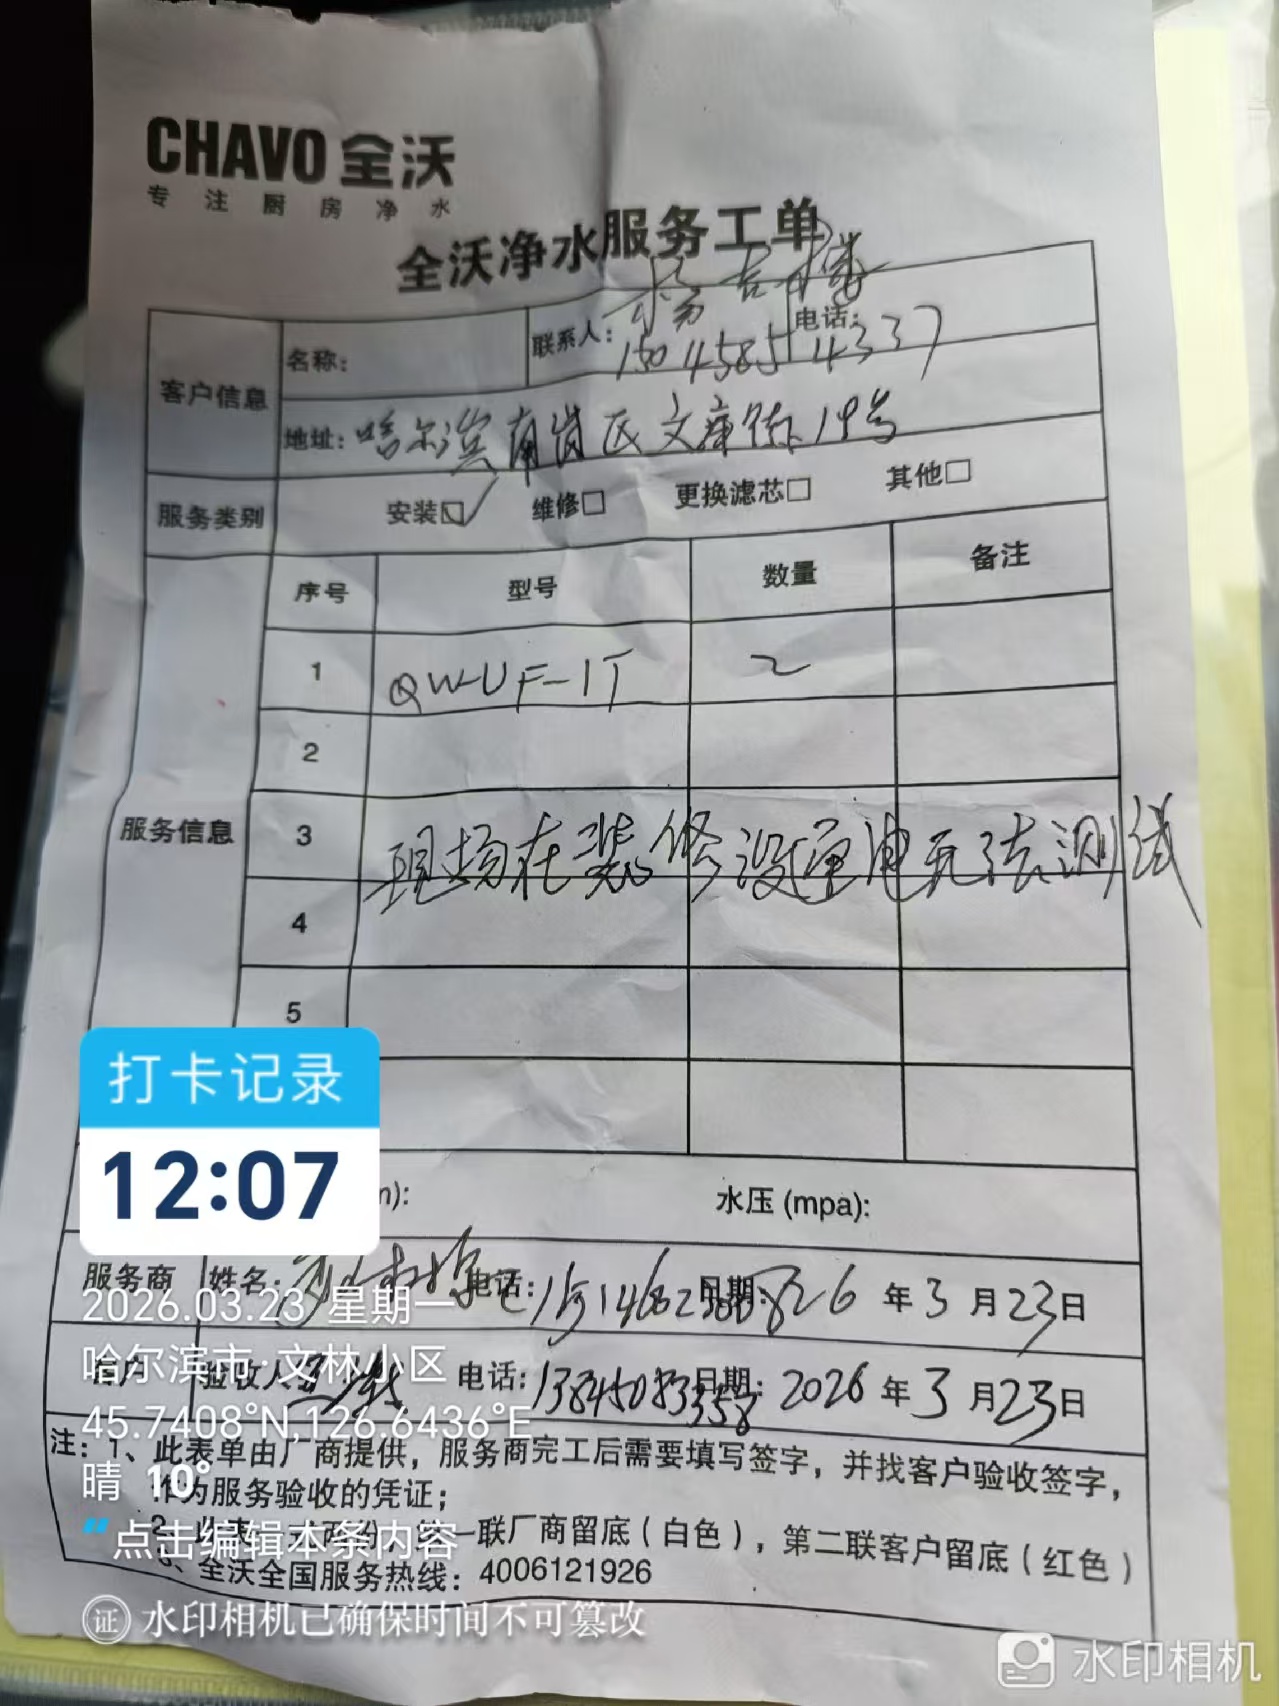 CHAVO 全沃
专注厨房净水
全沃净水服务工单
客户信息
名称:
联系人: 杨吉楼
电话:
15045854337
地址: 哈尔滨南岗区文库街19号
服务类别 安装☑ 维修□ 更换滤芯□ 其他□
服务信息
序号 型号 数量 备注
1 QW-UF-1T 2
2
3
现场在装修没通电无法测试
4
5
打卡记录
12:07
水压 (mpa):
服务商 姓名: 电话: 日期: 26 年 3 月 23 日
2026.03.23 星期一
哈尔滨市·文林小区
客户 验收人 电话: 13845083358 日期: 2026 年 3 月 23 日
45.7408°N,126.6436°E
注: 1、此表单由厂商提供，服务商完工后需要填写签字，并找客户验收签字，
作为服务验收的凭证；
晴 10°
一联厂商留底（白色），第二联客户留底（红色）
点击编辑本条内容
、全沃全国服务热线：4006121926
证 水印相机已确保时间不可篡改
水印相机